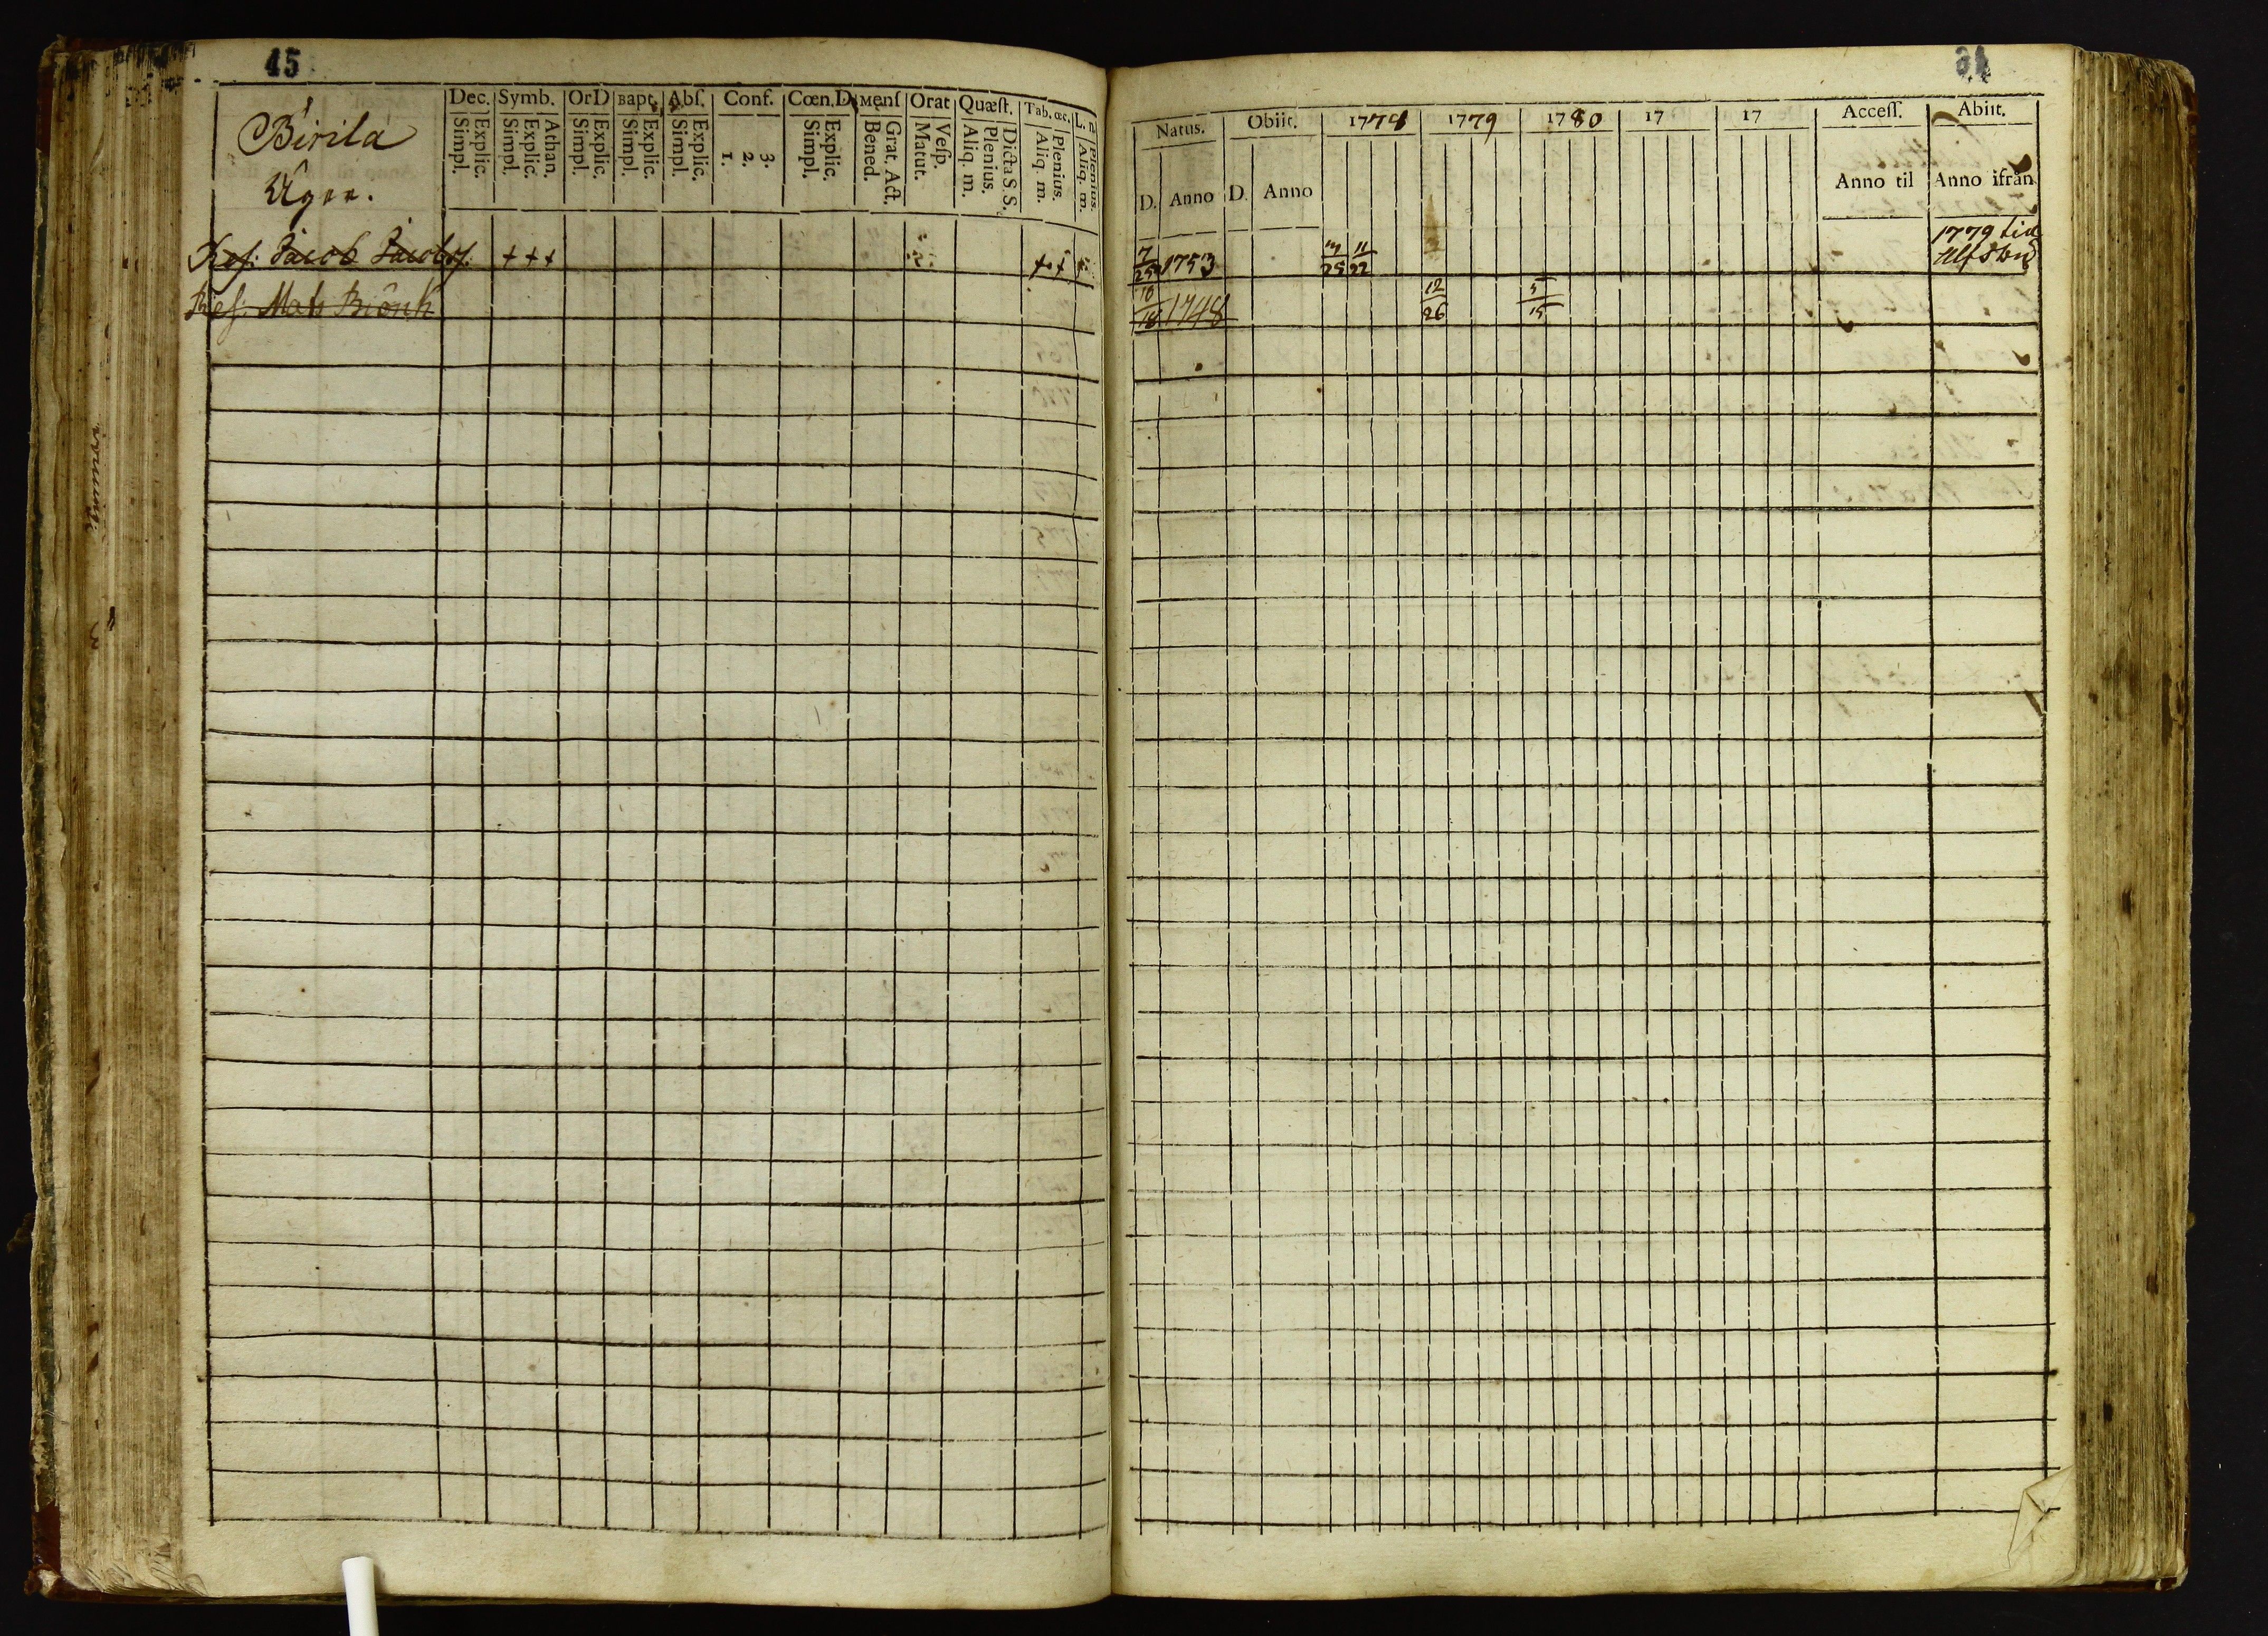 45
Birila
Ugnr.
Dec. Symb. OrD Bapt. Abſ. Conf. Cœn.D Menſ Orat Quæſt. Tab. œc. L. n
Explic. Simpl. Athan. Explic. Simpl. Explic. Simpl. Explic. Simpl. Explic. Simpl. 3. 2. 1. Explic. Simpl. Grat. Act. Bened. Veſp. Matut. Dicta S S. Plenius. Aliq. m. Plenius. Aliq. m. Plenius. Aliq. m.
Jacob Jacobſ. + + + + + +
Mats
31
Natus. Obiit. 1778 1779 1780 17 17 Acceſſ. Abiit.
D. Anno D. Anno Anno til Anno ifrån
7/25 1753 3/25 11/22 1779 til
10/18 1748 12/26 5/15